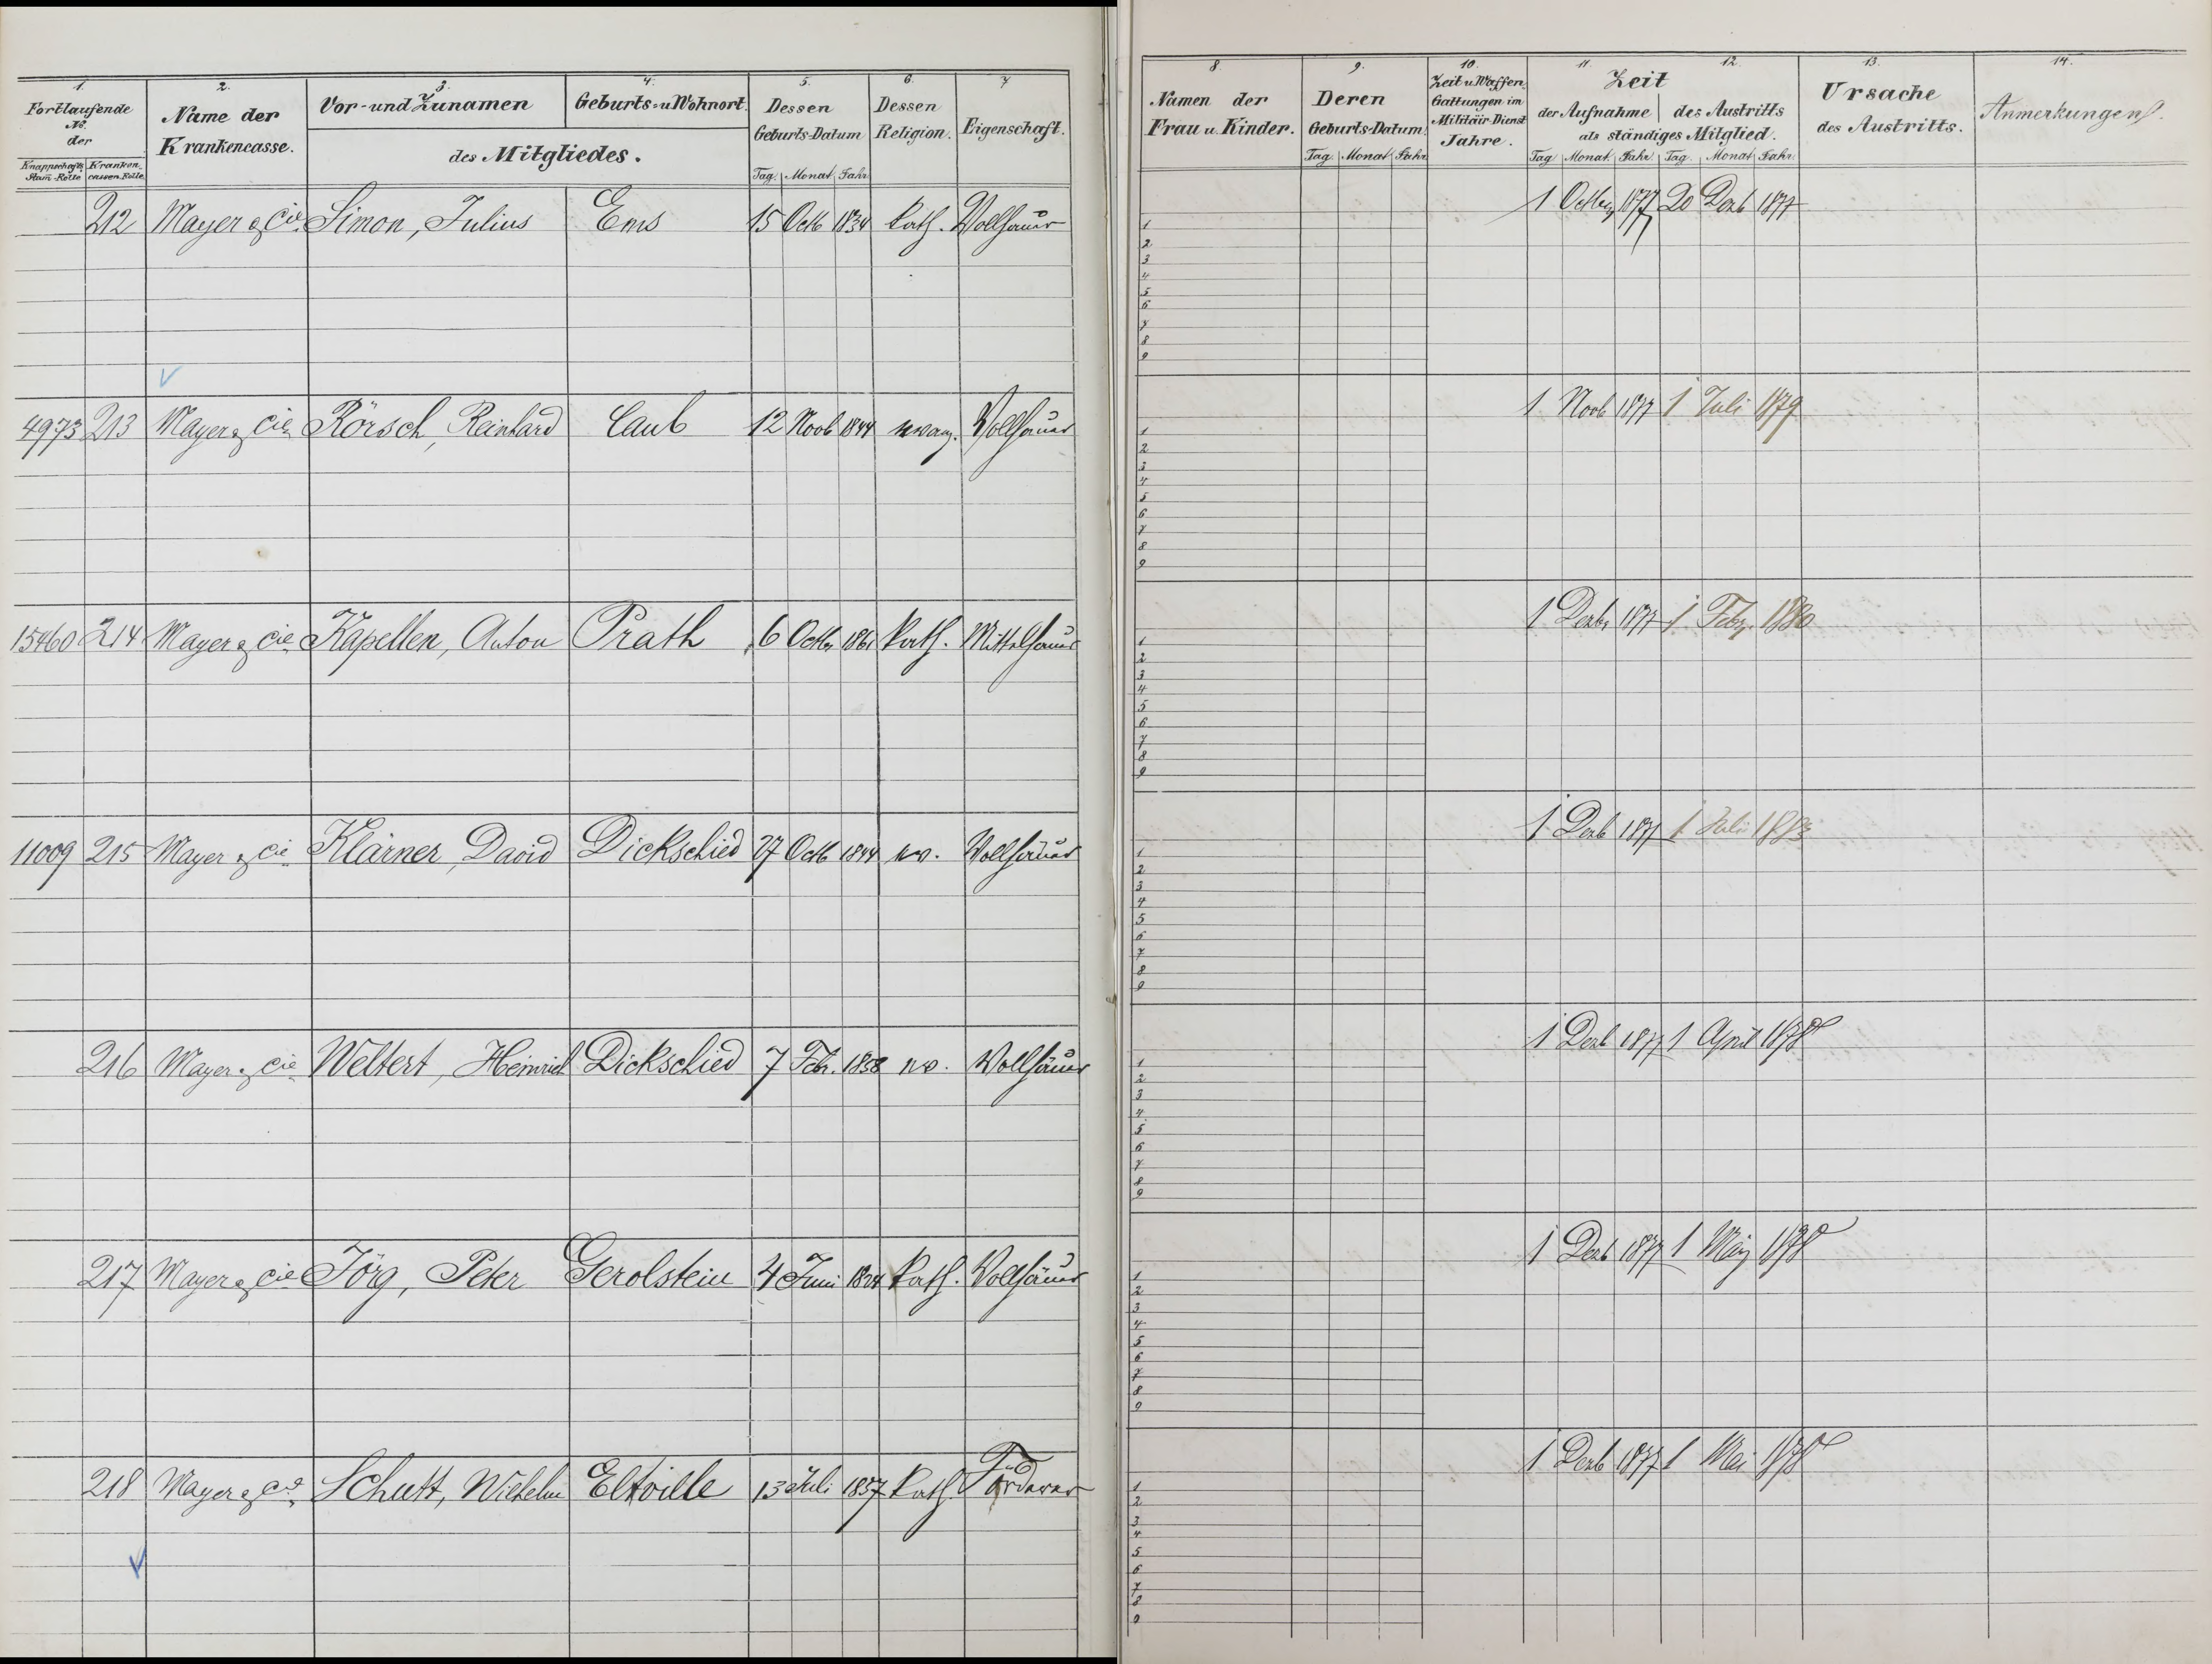 1. 2. 3. 4. 5. 6. 7
Fortlaufende No. der
Knappschafts Stam-Rolle Kranken cassen-Rolle
Name der Krankencasse.
Vor- und Zunamen Geburts- u Wohnort.
des Mitgliedes.
Dessen Geburts-Datum
Tag. Monat Jahr
Dessen Religion.
Eigenschaft.
212 Mayer & Cie. Simon, Julius Ems 15 Octb 1834 kath. Vollhäuer
4973 213 Mayer & Cie Rörsch, Reinhard Caub 12 Novb 1844 evang. Vollhäuer
15460 214 Mayer & Cie Kapellen, Anton Prath 6 Octbr 1861 kath. Mittelhäuer
11009 215 Mayer & Cie Klärner, David Dickschied 27 Octb 1844 ev. Vollhäuer
216 Mayer & Cie Weltert, Heinrich Dickschied 7 Febr. 1858 ev. Vollhäuer
217 Mayer & Cie Jörg, Peter Gerolstein 4 Juni 1824 kath. Vollhäuer
218 Mayer & Co. Schutt, Wilhelm Eltville 13 Juli 1857 kath. Förderer
8 9. 10. 11. 12. 13. 14.
Namen der Frau u. Kinder.
Deren Geburts-Datum.
Tag. Monat Jahr.
Zeit u. Waffen-Gattungen im Militäir-Dienst Jahre.
Zeit
der Aufnahme des Austritts
als ständiges Mitglied.
Tag Monat. Jahr. Tag. Monat. Jahr.
Ursache des Austritts.
Anmerkungen.
1 Octbr 1877 20 Dezb 1877
1
2
3
4
5
6
7
8
9
1 Novb 1877 1 Juli 1879
1
2
3
4
5
6
7
8
9
1 Dezbr 1877 1 Febr. 1880
1
2
3
4
5
6
7
8
9
1 Dezb 1877 1 Juli 1883
1
2
3
4
5
6
7
8
9
1 Dezb 1877 1 April 1878
1
2
3
4
5
6
7
8
9
1 Dezb 1877 1 März 1878
1
2
3
4
5
6
7
8
9
1 Dezb 1877 1 Mai 1878
1
2
3
4
5
6
7
8
9